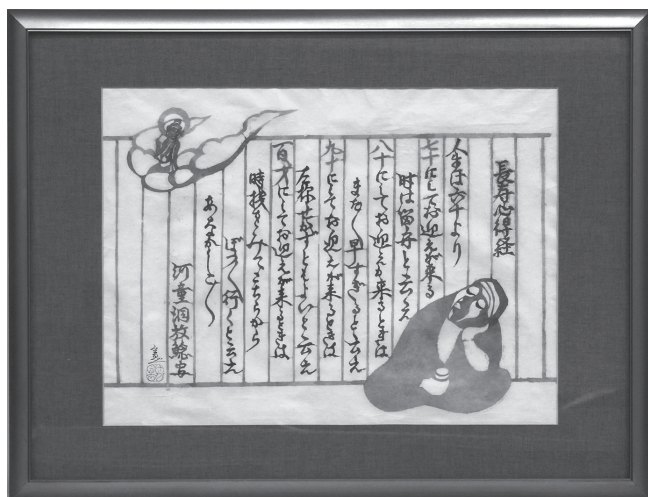 長寿心得経
人生は六十より
七十にしてお迎えが来る
時は留守と云え
八十にしてお迎えが来るときは
まだ〱早すぎると云え
九十にしてお迎えが来るときは
左様せかずともよいと云え
百才にしてお迎えが来るときは
時機をみてこちらから
ぼつ〱行くと云え
あなかしこ〱
河童洞教